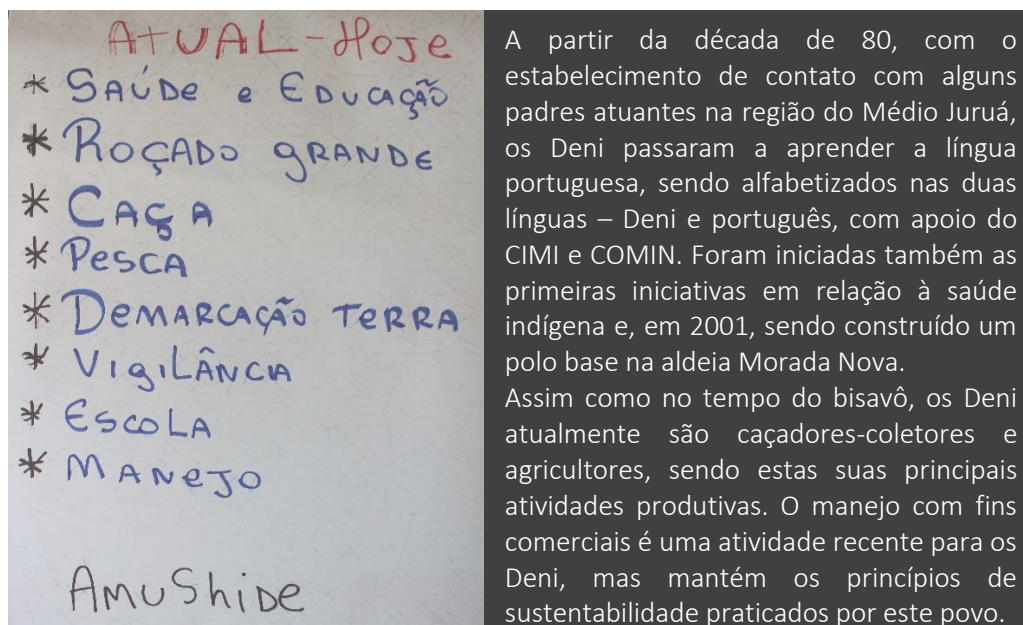 ATUAL-Hoje
* SAÚDe e EDUCAÇÃO
* ROÇADO gRANDE
* CAÇA
* PESCA
* DeMARCAÇÃO TeRRA
* VIgiLÂNCIA
* ESCOLA
* MANeJO
AmuShiDe
A partir da década de 80, com o
estabelecimento de contato com alguns
padres atuantes na região do Médio Juruá,
os Deni passaram a aprender a língua
portuguesa, sendo alfabetizados nas duas
línguas – Deni e português, com apoio do
CIMI e COMIN. Foram iniciadas também as
primeiras iniciativas em relação à saúde
indígena e, em 2001, sendo construído um
polo base na aldeia Morada Nova.
Assim como no tempo do bisavô, os Deni
atualmente são caçadores-coletores e
agricultores, sendo estas suas principais
atividades produtivas. O manejo com fins
comerciais é uma atividade recente para os
Deni, mas mantém os princípios de
sustentabilidade praticados por este povo.